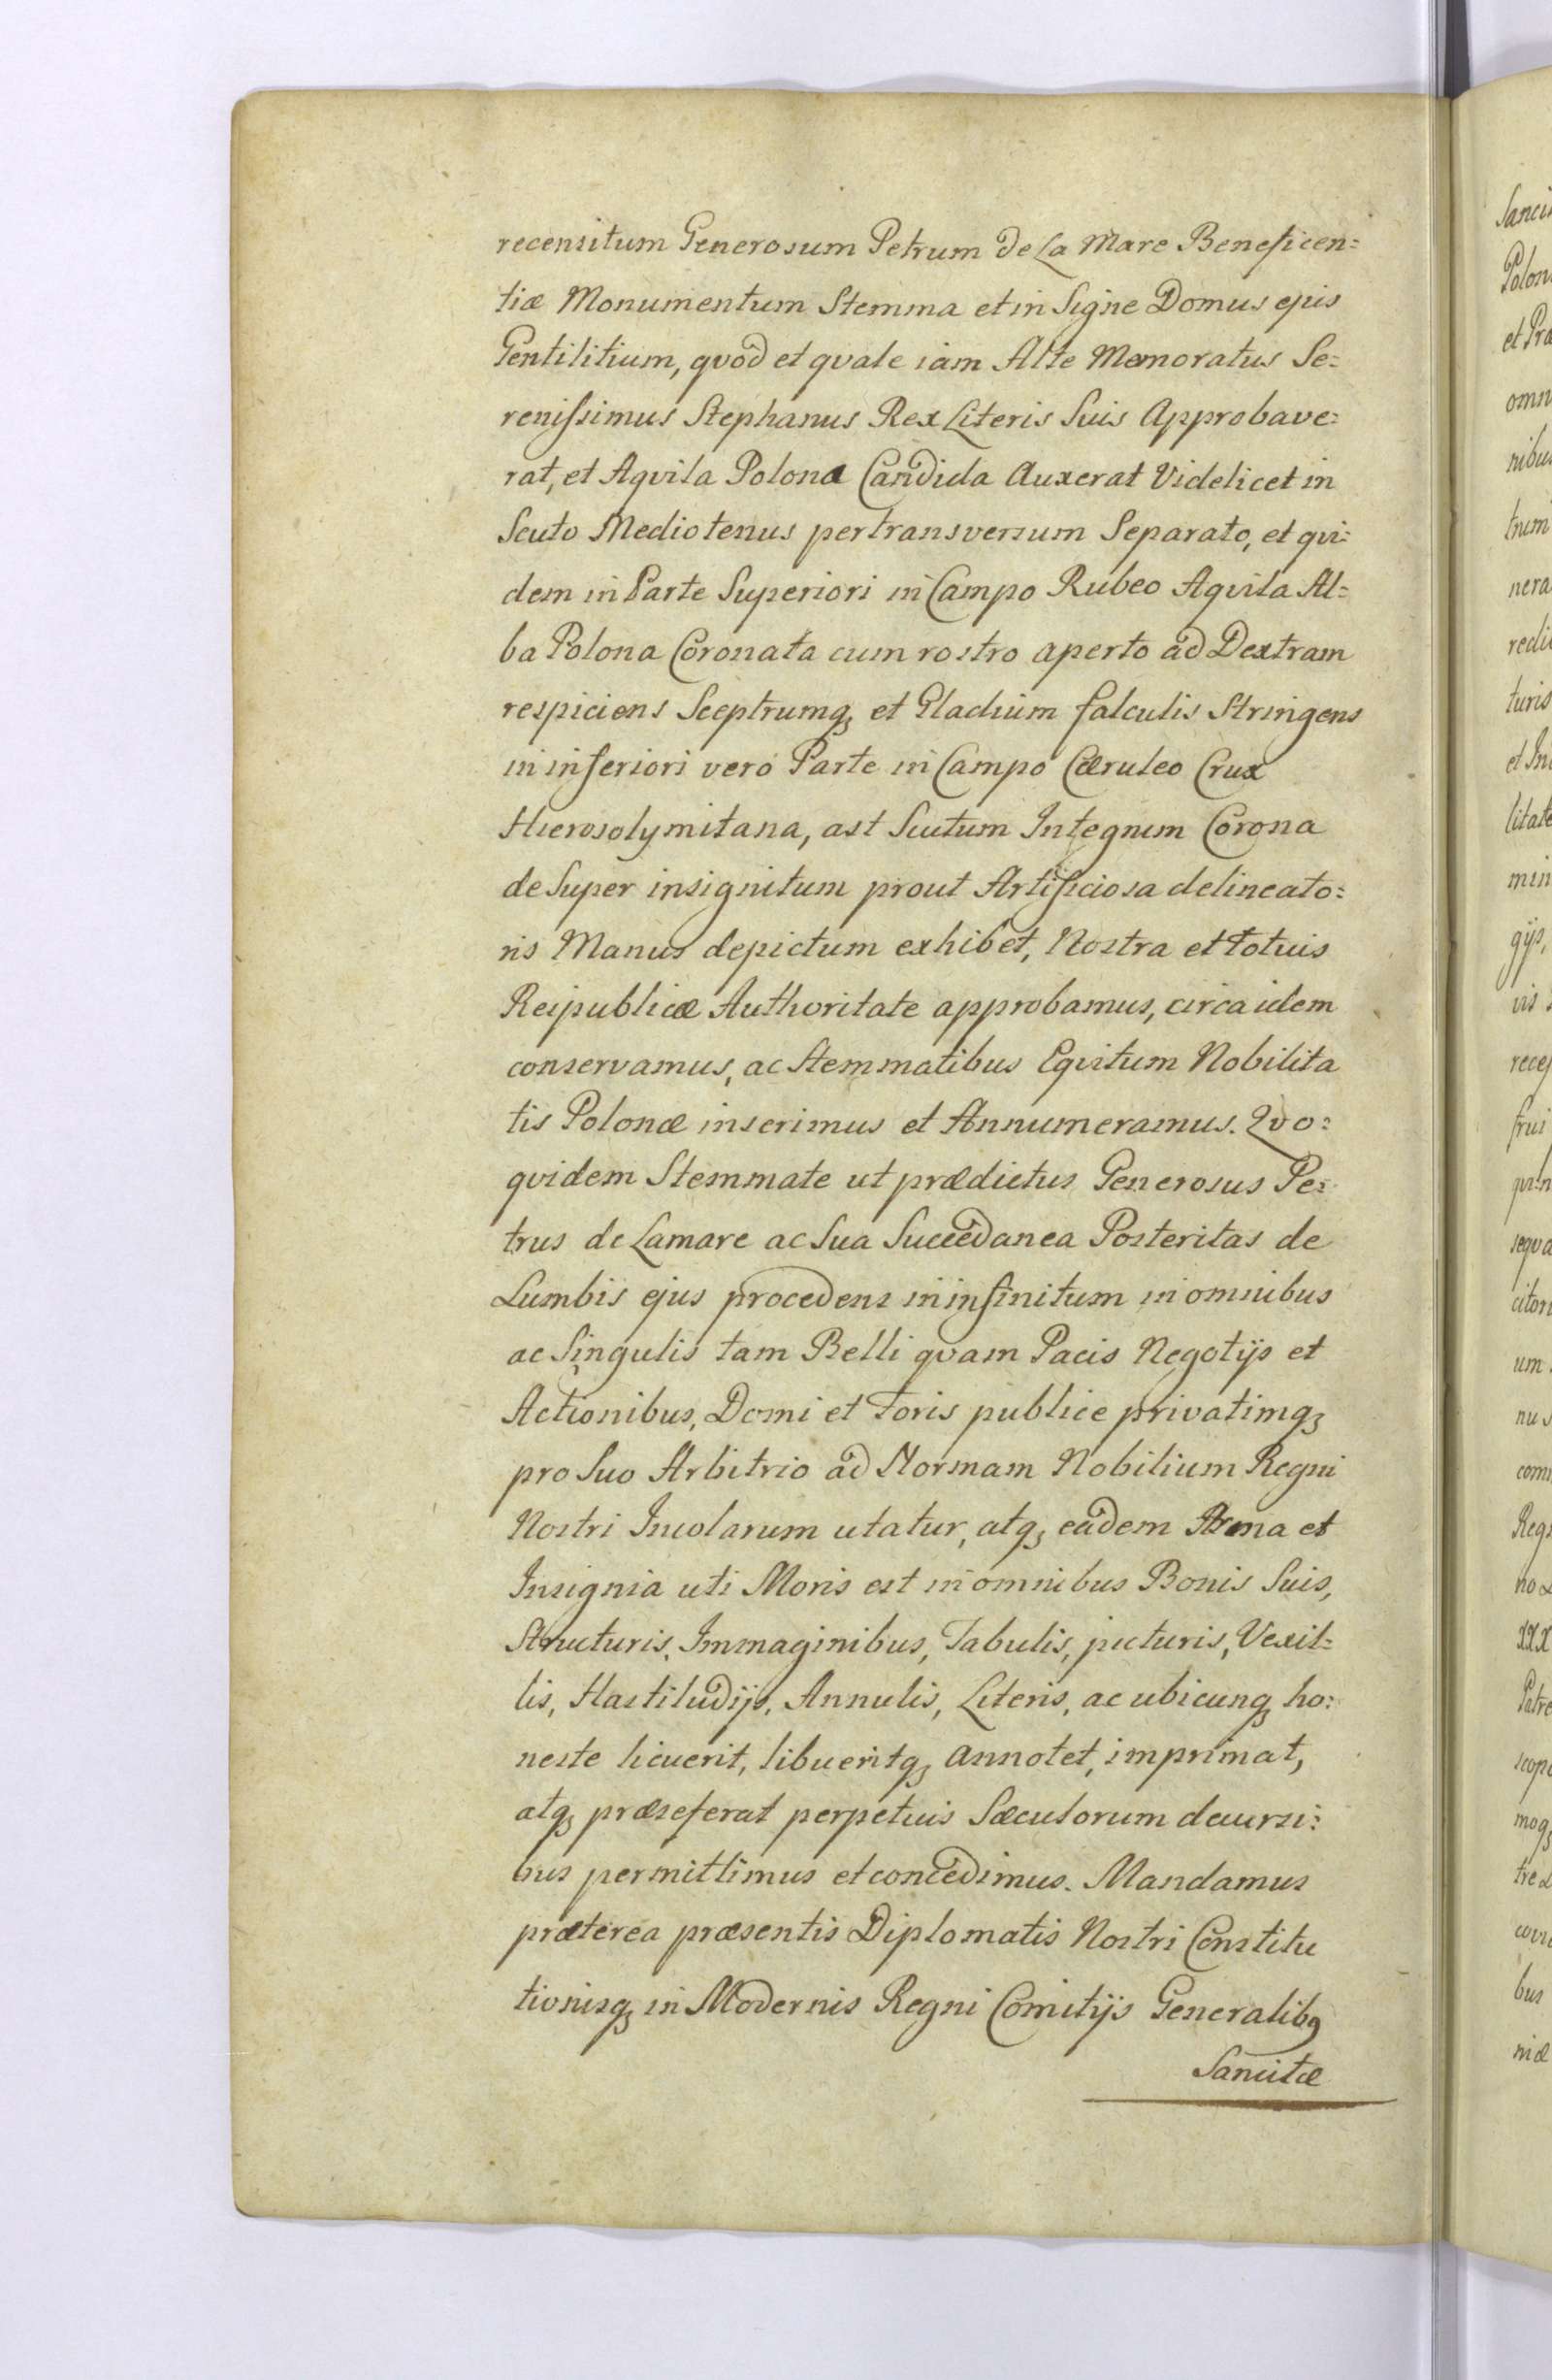 recensitum Generosum Petrum de La Mare Beneficen=
tiæ Monumentum Stemma et in Signe Domus ejus
Gentilitium, qvod et qvale iam Alte Memoratus Se=
renissimus Stephanus Rex Literis Suis Approbave=
rat, et Aqvila Polona Candida Auxerat Videlicet in
Scuto Mediotenus per transversum Separato, et qvi=
dem in Parte Superiori in Campo Rubeo Aqvila Al=
ba Polona Coronata cum rostro aperto ad Dextram
respiciens Sceptrumq₃ et Gladium falculis Stringens
in inferiori vero Parte in Campo Cæruleo Crux
Hierosolymitana, ast Scutum Integrum Corona
de Super insignitum prout Artificiosa delineato=
ris Manus depictum exhibet, Nostra et totuis
Reipublicæ Authoritate approbamus, circa idem
conservamus, ac Stemmatibus Eqvitum Nobilita
tis Polonæ inserimus et Annumeramus. Qvo=
qvidem Stemmate ut prædictus Generosus Pe=
trus de Lamare ac Sua Succedanea Posteritas de
Lumbis ejus procedens in infinitum in omnibus
ac Singulis tam Belli qvam Pacis Negotijs et
Actionibus, Domi et Foris publice privatimq₃
pro Suo Arbitrio ad Normam Nobilium Regni
Nostri Incolarum utatur, atq₃ eadem Arma et
Insignia uti Moris est in omnibus Bonis Suis,
Structuris, Immaginibus, Tabulis, picturis, Vexil=
lis, Hastiludijs, Annulis, Literis, ac ubicunq₃ ho=
neste licuerit, libueritq₃ annotet, imprimat,
atq₃ præseferat perpetuis Sæculorum decursi=
bus permittimus et concedimus. Mandamus
præterea præsentis Diplomatis Nostri Constitu
tionisq₃ in Modernis Regni Comitijs Generalibꝰ
Sancitæ